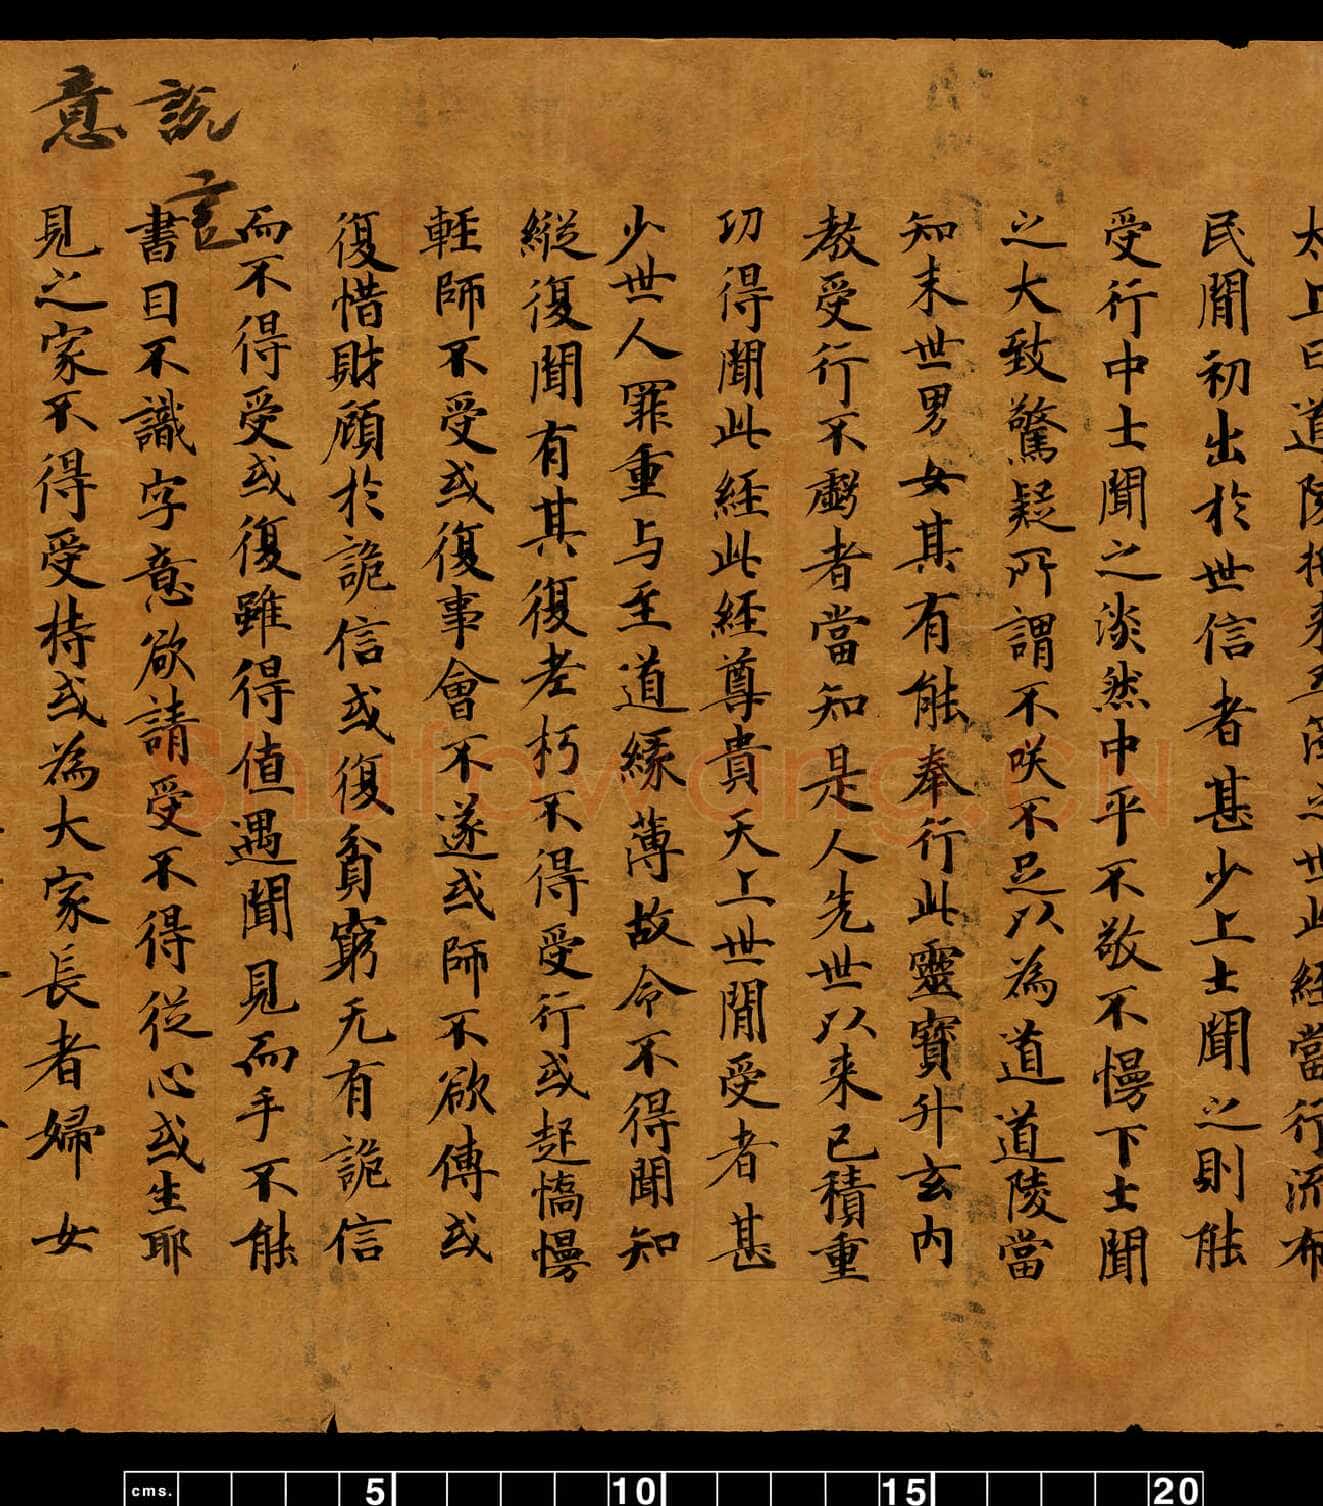 太上曰道陵推来至蕳之世此經當行流布
民閒初出於世信者甚少上士聞之則能
受行中士聞之淡然中平不敬不慢下士聞
之大致驚疑所謂不咲不足以為道道陵當
知末世男女其有能奉行此靈寶升玄內
教受行不虧者當知是人先世以来已積重
功得聞此經此經尊貴天上世閒受者甚
少世人罪重与至道緣薄故令不得聞知
縱復聞有其復老朽不得受行或起憍慢
輊師不受或復事會不遂或師不欲傳或
復惜財顧於詭信或復貧窮无有詭信
而不得受或復雖得值遇聞見而手不能
書目不識字意欲請受不得從心或生耶
見之家不得受持或為大家長者婦女
說
意
言
Shufawang.CN
cms. 5 10 15 20